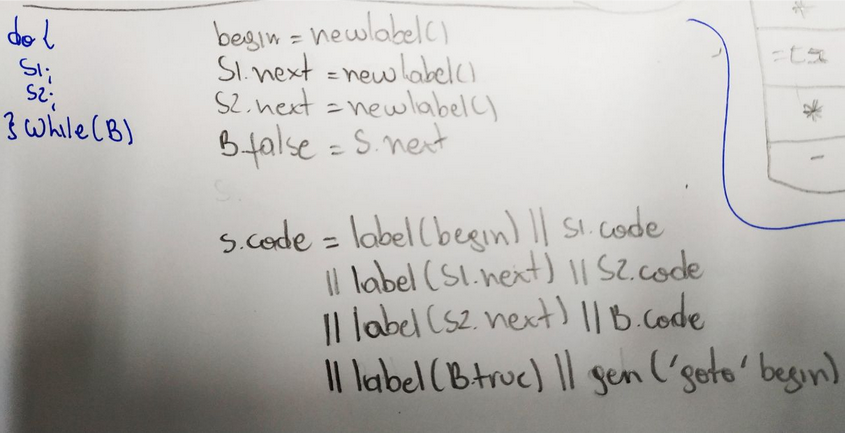 do {
S1;
S2;
} while(B)
begin = newlabel()
S1.next = newlabel()
S2.next = newlabel()
B.false = S.next
S.code = label(begin) || S1.code
|| label(S1.next) || S2.code
|| label(S2.next) || B.code
|| label(B.true) || gen('goto' begin)
*
*
-